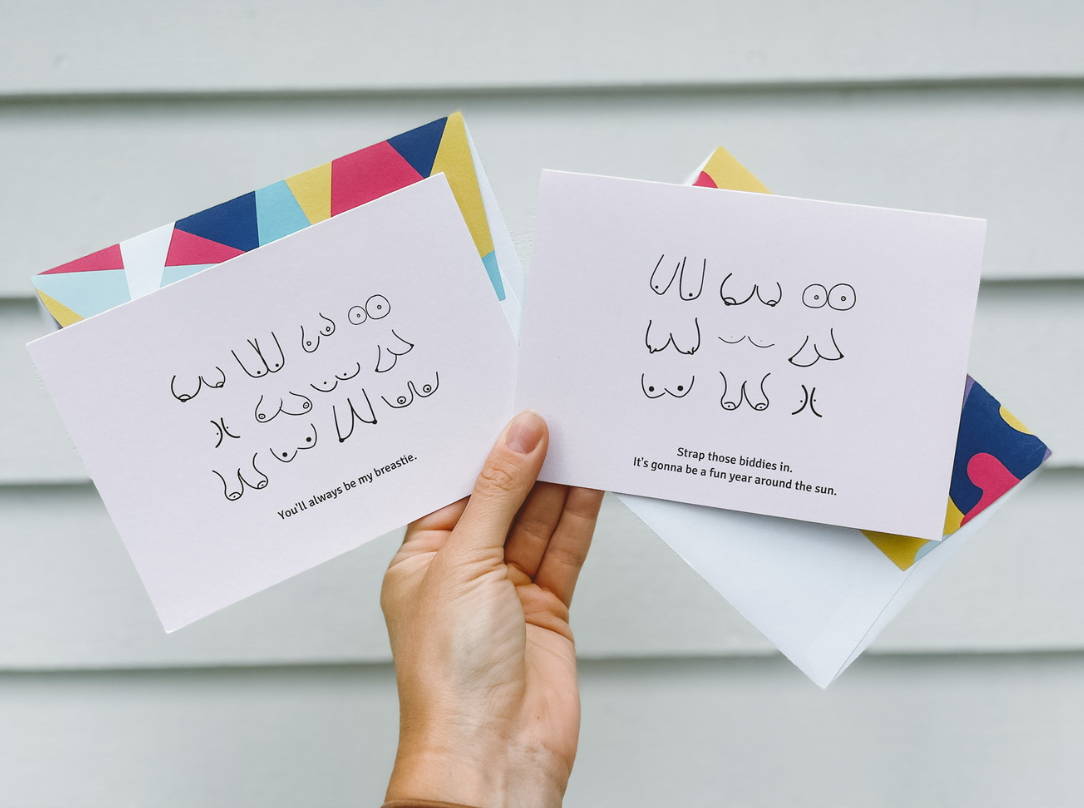 You'll always be my breastie.
Strap those biddies in.
It's gonna be a fun year around the sun.